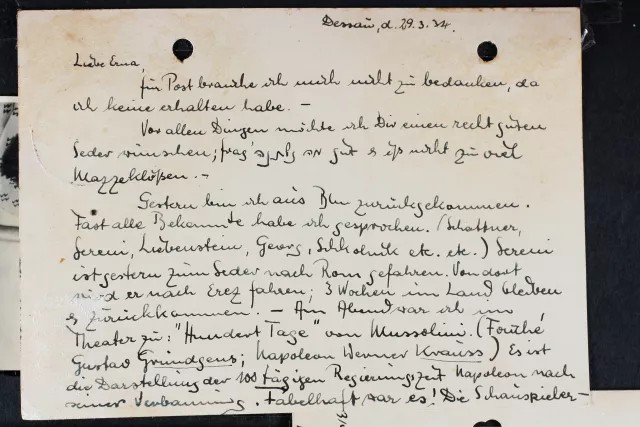 Dessau, d. 29.3.34.
Liebe Erna,
für Post brauche ich mich nicht zu bedanken, da
ich keine erhalten habe. —
Vor allen Dingen möchte ich Dir einen recht guten
Seder wünschen; frag' gut & iß nicht zu viel
Mazzeklößen. —
Gestern bin ich aus Bln zurückgekommen.
Fast alle Bekannte habe ich gesprochen. (Schattner,
Sereni, Liebenstein, Georg, Schkolnik etc. etc.) Sereni
ist gestern zum Seder nach Rom gefahren. Von dort
wird er nach Erez fahren; 3 Wochen im Land bleiben
& zurückkommen. — Am Abend war ich im
Theater zu: "Hundert Tage" von Mussolini. (Fouché,
Gustav Gründgens; Napoleon Werner Krauss.) Es ist
die Darstellung der 100 tägigen Regierungszeit Napoleon nach
seiner Verbannung. Fabelhaft war es! Die Schauspieler-